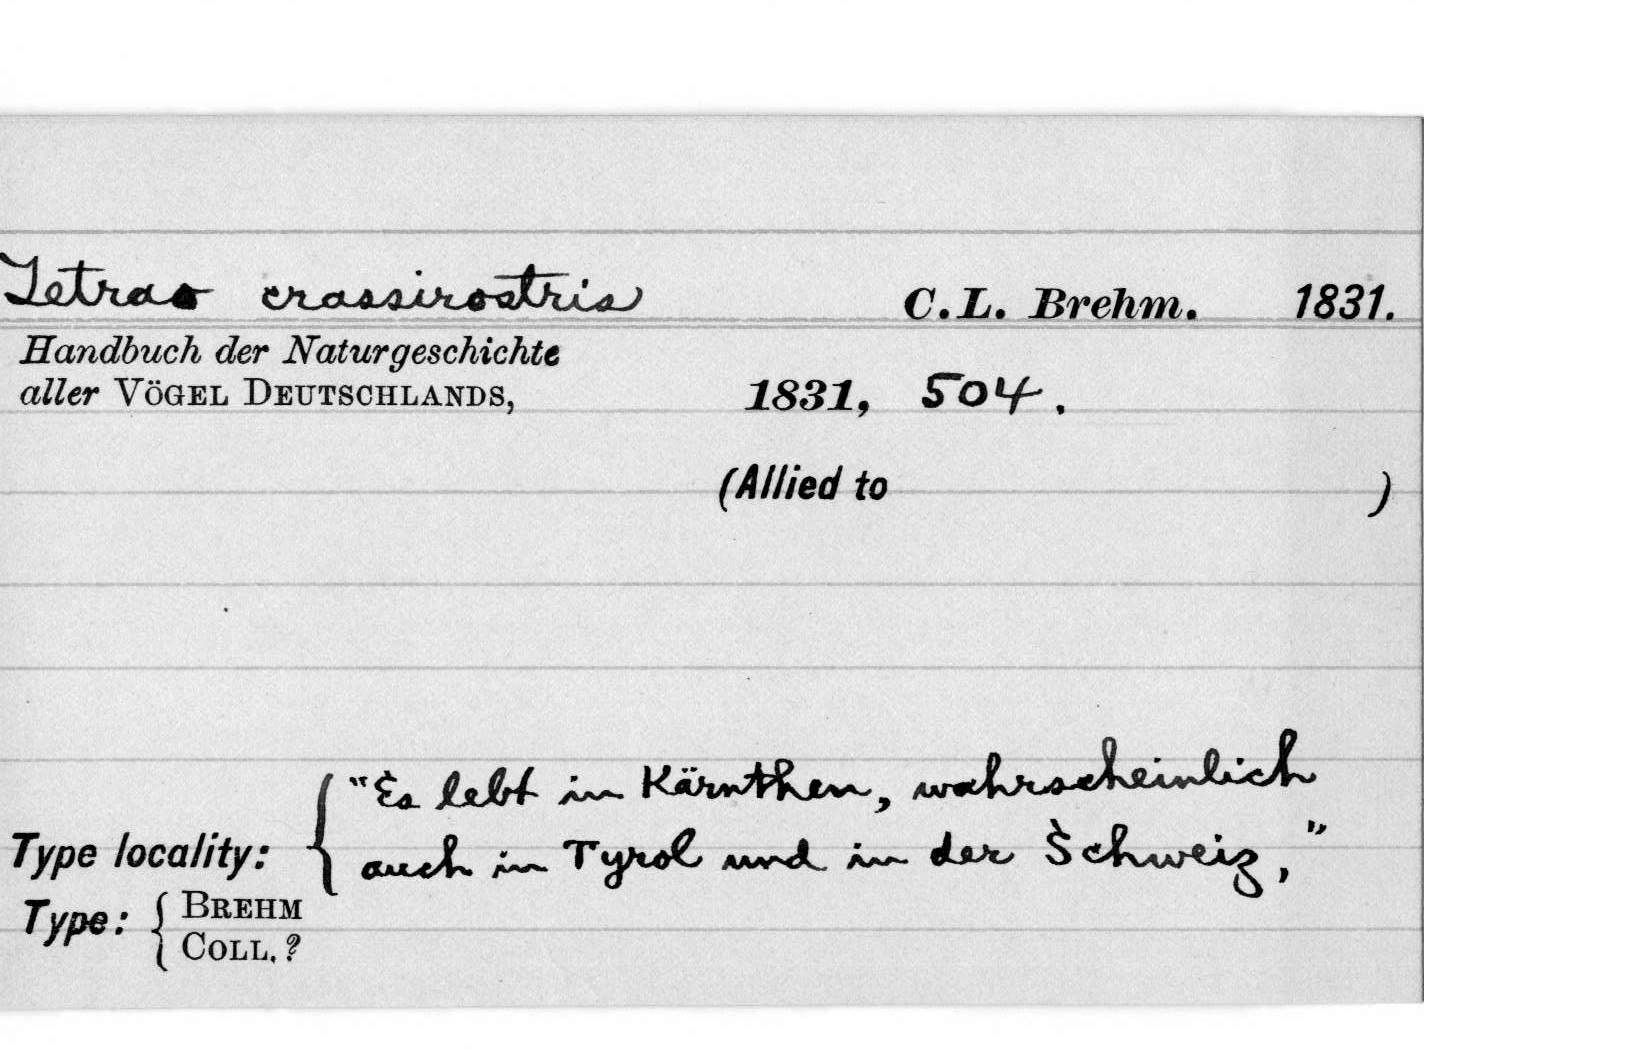 Tetrao crassirostris C.L. Brehm. 1831.
Handbuch der Naturgeschichte
aller VÖGEL DEUTSCHLANDS, 1831, 504.
(Allied to )
"Es lebt in Kärnthen, wahrscheinlich
Type locality: auch in Tyrol und in der Schweiz,"
Type: BREHM
COLL.?